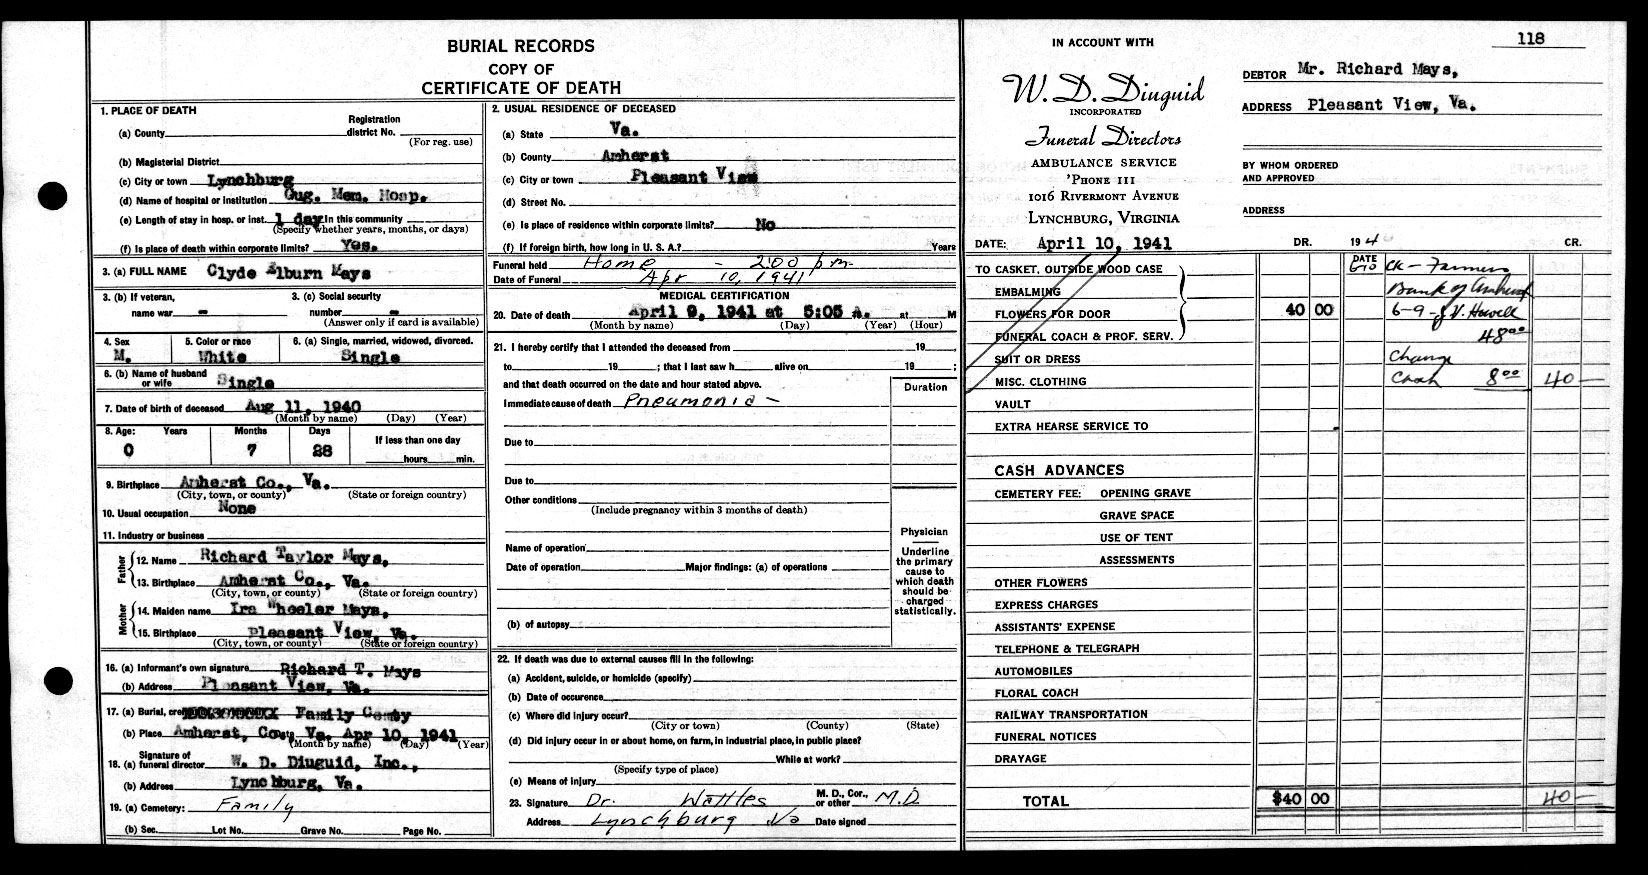 BURIAL RECORDS
COPY OF
CERTIFICATE OF DEATH
1. PLACE OF DEATH
Registration
(a) County district No.
(For reg. use)
(b) Magisterial District
(c) City or town Lynchburg
(d) Name of hospital or institution Gug. Mem. Hosp.
(e) Length of stay in hosp. or inst. 1 day In this community
(Specify whether years, months, or days)
(f) Is place of death within corporate limits? Yes.
3. (a) FULL NAME Clyde Alburn Mays
3. (b) If veteran, 3. (c) Social security
name war - number -
(Answer only if card is available)
4. Sex 5. Color or race 6. (a) Single, married, widowed, divorced.
M. White Single
6. (b) Name of husband
or wife Single
7. Date of birth of deceased Aug 11, 1940
(Month by name) (Day) (Year)
8. Age: Years Months Days If less than one day
0 7 28 hours min.
9. Birthplace Amherst Co., Va.
(City, town, or county) (State or foreign country)
10. Usual occupation None
11. Industry or business
Father
12. Name Richard Taylor Mays,
13. Birthplace Amherst Co., Va.
(City, town, or county) (State or foreign country)
Mother
14. Maiden name Ira Wheeler Mays,
15. Birthplace Pleasant View, Va.
(City, town, or county) (State or foreign country)
16. (a) Informant's own signature Richard T. Mays
(b) Address Pleasant View, Va.
17. (a) Burial, cre Family
(b) Place Amherst, Va. Apr 10, 1941
(Month by name) (Day) (Year)
Signature of
18. (a) funeral director W. D. Diuguid, Inc.,
(b) Address Lynchburg, Va.
19. (a) Cemetery: Family
(b) Sec. Lot No. Grave No. Page No.
2. USUAL RESIDENCE OF DECEASED
(a) State Va.
(b) County Amherst
(c) City or town Pleasant View
(d) Street No.
(e) Is place of residence within corporate limits? No
(f) If foreign birth, how long in U. S. A.? Years
Funeral held Home - 2:00 pm.
Date of Funeral Apr 10, 1941
MEDICAL CERTIFICATION
20. Date of death April 9, 1941 at 5:05 a. at M
(Month by name) (Day) (Year) (Hour)
21. I hereby certify that I attended the deceased from 19 ,
to 19 ; that I last saw h alive on 19 ;
and that death occurred on the date and hour stated above. Duration
Immediate cause of death Pneumonia -
Due to
Due to
Other conditions
(Include pregnancy within 3 months of death)
Physician
Underline
the primary
cause to
which death
should be
charged
statistically.
Name of operation
Date of operation Major findings: (a) of operations
(b) of autopsy
22. If death was due to external causes fill in the following:
(a) Accident, suicide, or homicide (specify)
(b) Date of occurence
(c) Where did injury occur?
(City or town) (County) (State)
(d) Did injury occur in or about home, on farm, in industrial place, in public place?
While at work?
(Specify type of place)
(e) Means of injury
23. Signature Dr. Wattles M. D., Cor., or other M.D
Address Lynchburg Va Date signed
118
IN ACCOUNT WITH
W. D. Diuguid
INCORPORATED
Funeral Directors
AMBULANCE SERVICE
'PHONE 111
1016 RIVERMONT AVENUE
LYNCHBURG, VIRGINIA
DEBTOR Mr. Richard Mays,
ADDRESS Pleasant View, Va.
BY WHOM ORDERED
AND APPROVED
ADDRESS
DATE: April 10, 1941 DR. 194 CR.
TO CASKET, OUTSIDE WOOD CASE
EMBALMING
FLOWERS FOR DOOR 40 00
FUNERAL COACH & PROF. SERV.
SUIT OR DRESS
MISC. CLOTHING
VAULT
EXTRA HEARSE SERVICE TO
DATE
6-10 CK - Farmers
Bank of Amherst
6-9 - J.V. Howell
48 00
Change
Cash 8 00 40 -
CASH ADVANCES
CEMETERY FEE: OPENING GRAVE
GRAVE SPACE
USE OF TENT
ASSESSMENTS
OTHER FLOWERS
EXPRESS CHARGES
ASSISTANTS' EXPENSE
TELEPHONE & TELEGRAPH
AUTOMOBILES
FLORAL COACH
RAILWAY TRANSPORTATION
FUNERAL NOTICES
DRAYAGE
TOTAL $40 00 40 -